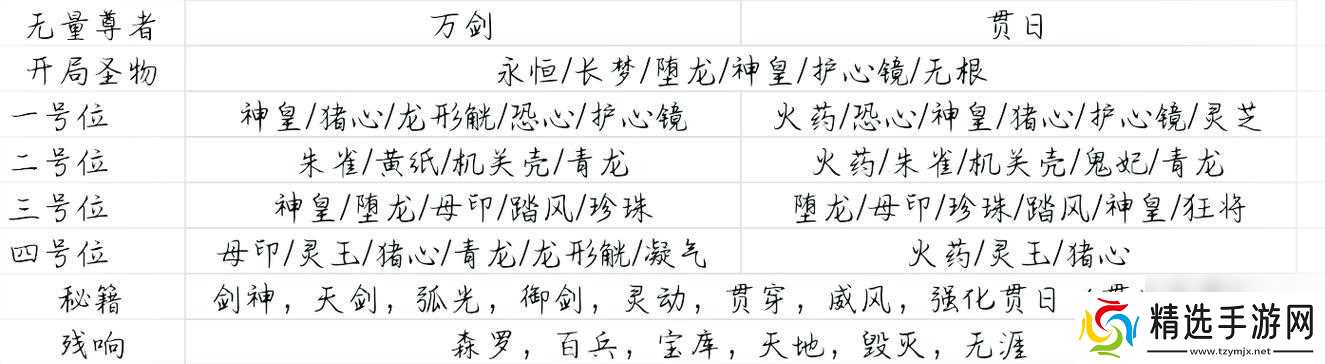 无量尊者 万剑 贯日
开局圣物 永恒/长梦/堕龙/神皇/护心镜/无根
一号位 神皇/猪心/龙形觥/恐心/护心镜 火药/恐心/神皇/猪心/护心镜/灵芝
二号位 朱雀/黄纸/机关壳/青龙 火药/朱雀/机关壳/鬼妃/青龙
三号位 神皇/堕龙/母印/踏风/珍珠 堕龙/母印/珍珠/踏风/神皇/狂将
四号位 母印/灵玉/猪心/青龙/龙形觥/凝气 火药/灵玉/猪心
秘籍 剑神，天剑，弧光，御剑，灵动，贯穿，威风，强化贯日
残响 森罗，百兵，宝库，天地，毁灭，无涯
精选手游网
www.tzymjx.net